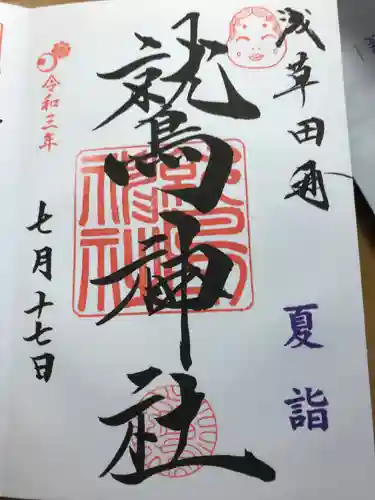 浅草田甫
夏詣
鷲神社
令和三年
七月十七日